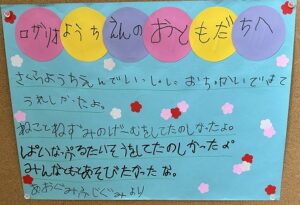 ロザリオようちえんのおともだちへ
さくらようちえんでいっしょにおちゃかいできて
うれしかったよ。
ねことねずみのげーむをしてたのしかったよ。
ぱいなっぷるたいそうをしてたのしかったよ
みんなとあそびたかったな。
あおぐみふじぐみより